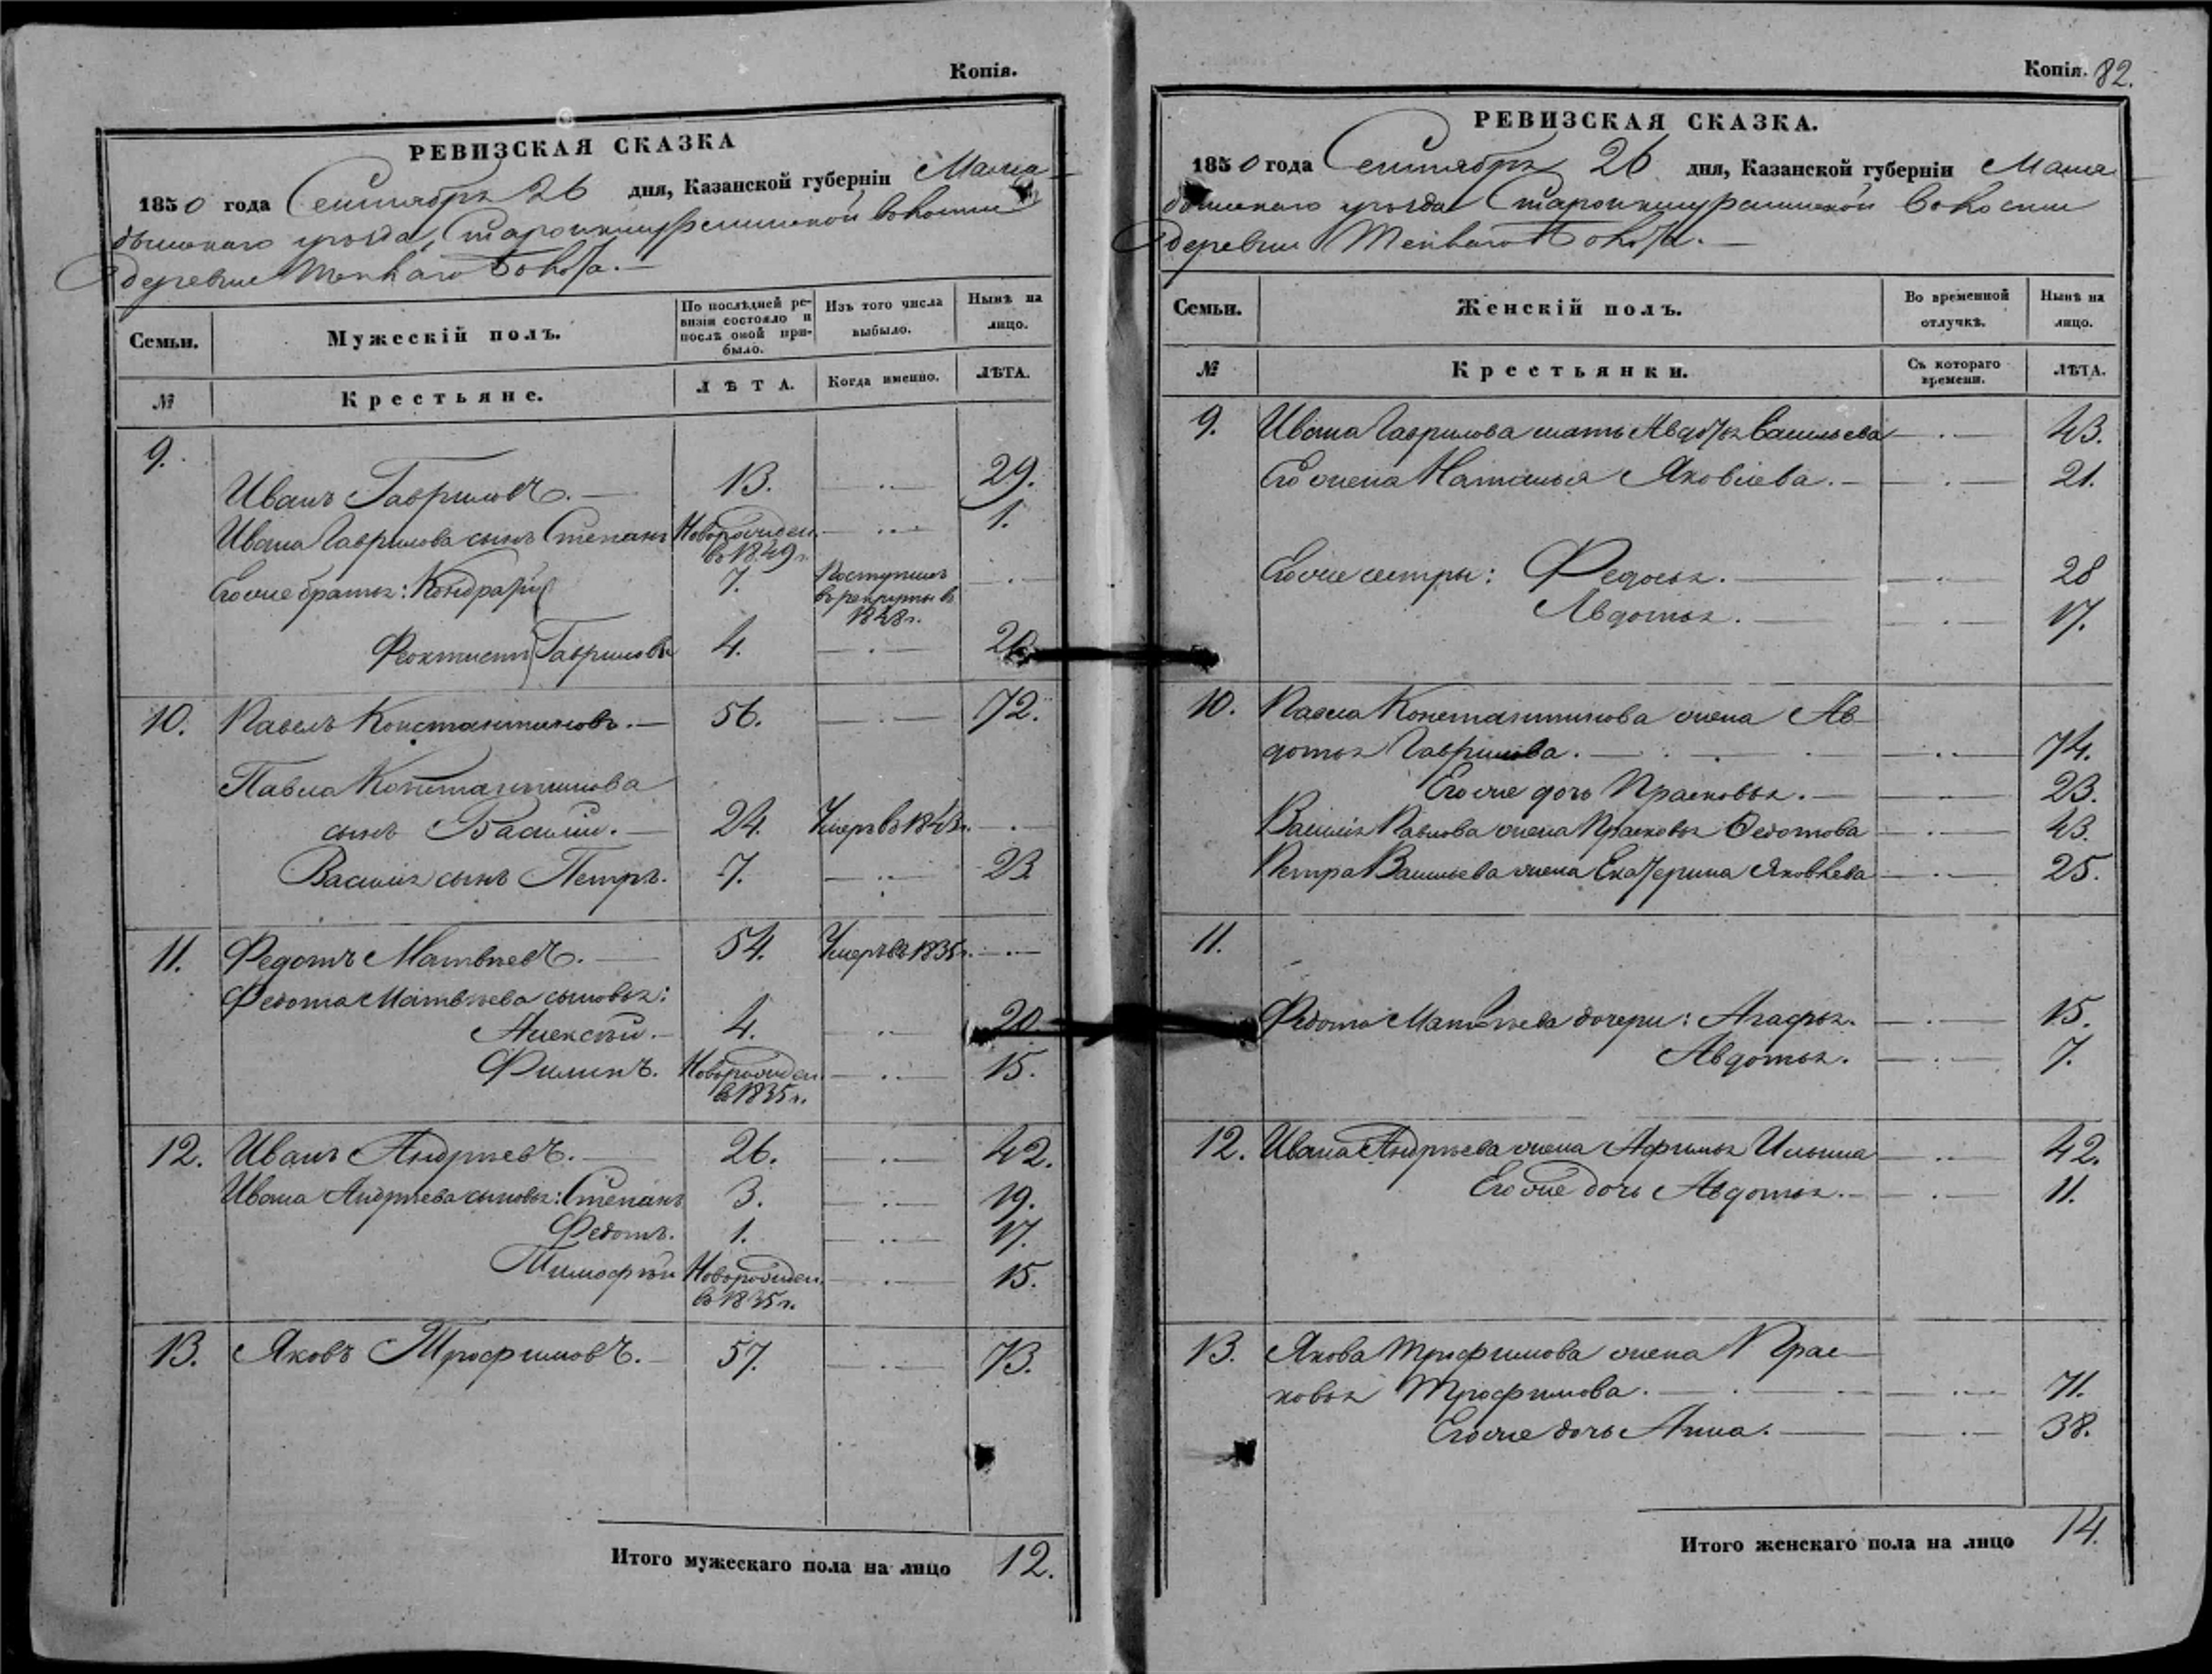 Копія.
РЕВИЗСКАЯ СКАЗКА
1850 года Сентября 26 дня, Казанской губерніи Мама-
дышскаго уѣзда, Старо волости
деревни Теплаго
Семьи.
Мужескій полъ.
По послѣдней ре-
визіи состояло и
послѣ оной при-
было.
Изъ того числа
выбыло.
Нынѣ на
лицо.
№
Крестьяне.
ЛѢТА.
Когда именно.
ЛѢТА.
9. Иванъ Гавриловъ. 13. 29.
Ивана Гаврилова сынъ Степанъ Новорожден. 1.
въ 1849 г.
Его же братья: Кондратій 7. Поступилъ
въ рекруты въ
1848 г.
Феоктистъ Гавриловы 4. 20.
10. Павелъ Константиновъ. 56. 72.
Павла Константинова
сынъ Василій. 24. Умеръ въ 1843 г.
Василія сынъ Петръ. 7. 23.
11. Федотъ Матвѣевъ. 54. Умеръ въ 1835 г.
Федота Матвѣева сыновья:
Алексѣй. 4. 20.
Филипъ. Новорожден. 15.
въ 1835 г.
12. Иванъ Андреевъ. 26. 42.
Ивана Андреева сыновья: Степанъ 3. 19.
Федотъ. 1. 17.
Тимофѣй Новорожден. 15.
въ 1835 г.
13. Яковъ Трофимовъ. 57. 73.
Итого мужескаго пола на лицо 12.
Копія. 82.
РЕВИЗСКАЯ СКАЗКА.
1850 года Сентября 26 дня, Казанской губерніи Мама
дышскаго уѣзда Старо волости
деревни Теплаго
Семьи.
Женскій полъ.
Во временной
отлучкѣ.
Нынѣ на
лицо.
№
Крестьянки.
Съ котораго
времени.
ЛѢТА.
9. Ивана Гаврилова мать Авдотья Васильева 43.
Его жена Наталья Яковлева. 21.
Его же сестры: Федосья. 28
Авдотья. 17.
10. Павла Константинова жена Ав-
дотья Гаврилова. 74.
Его же дочь Прасковья. 23.
Василія Павлова жена Прасковья Федотова 43.
Петра Васильева жена Екатерина Яковлева 25.
11.
Федота Матвѣева дочери: Агафья. 15.
Авдотья. 7.
12. Ивана Андреева жена Афимья Ильина 42.
Его же дочь Авдотья. 11.
13. Якова Трофимова жена Прас-
ковья Трофимова. 71.
Его же дочь Анна. 38.
Итого женскаго пола на лицо 14.